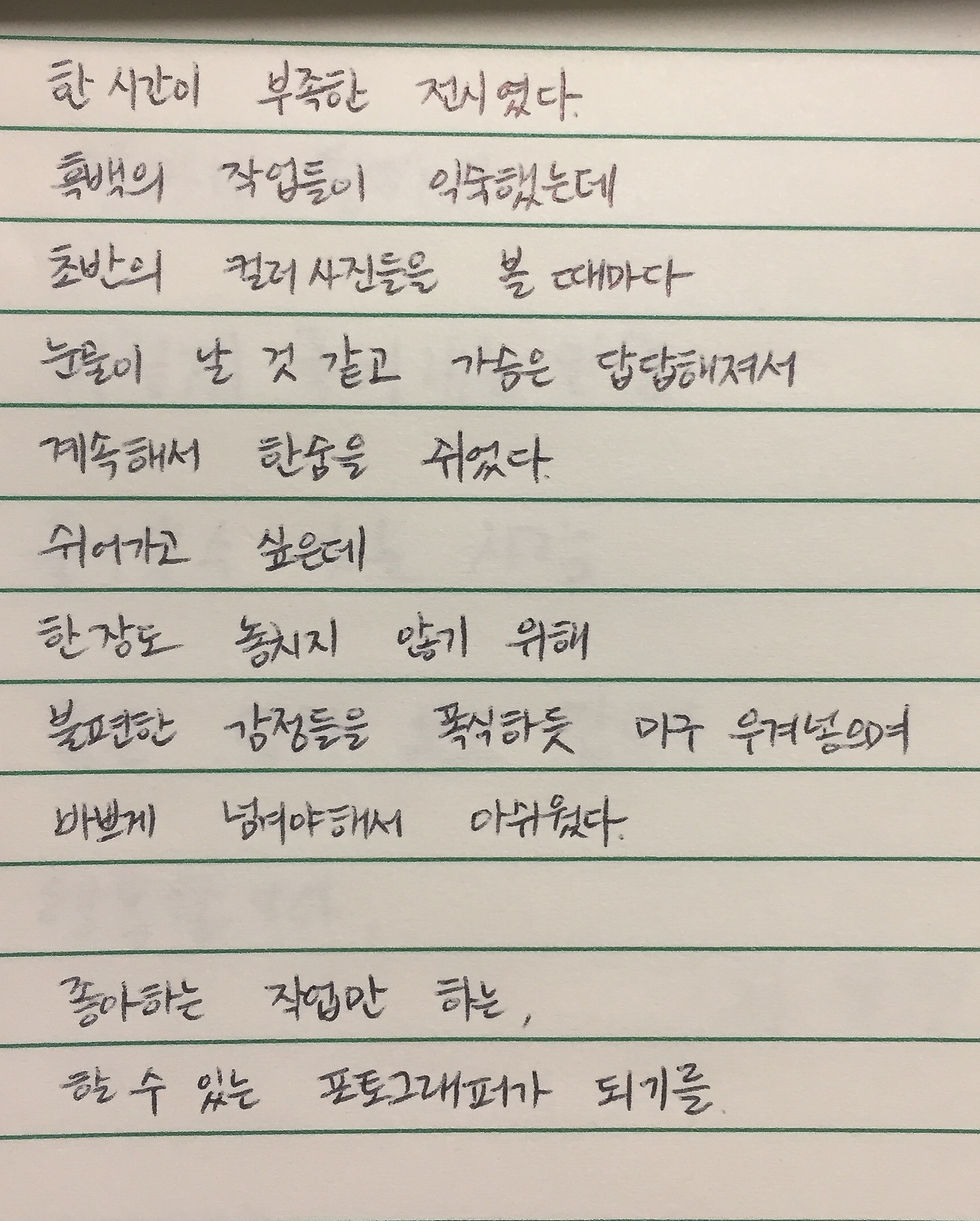 한 시간이 부족한 전시였다.
흑백의 작업들이 익숙했는데
초반의 컬러 사진들을 볼 때마다
눈물이 날 것 같고 가슴은 답답해져서
계속해서 한숨을 쉬었다.
쉬어가고 싶은데
한 장도 놓치지 않기 위해
불편한 감정들을 폭식하듯 마구 우겨넣으며
바쁘게 넘겨야해서 아쉬웠다.
좋아하는 작업만 하는,
할 수 있는 포토그래퍼가 되기를.